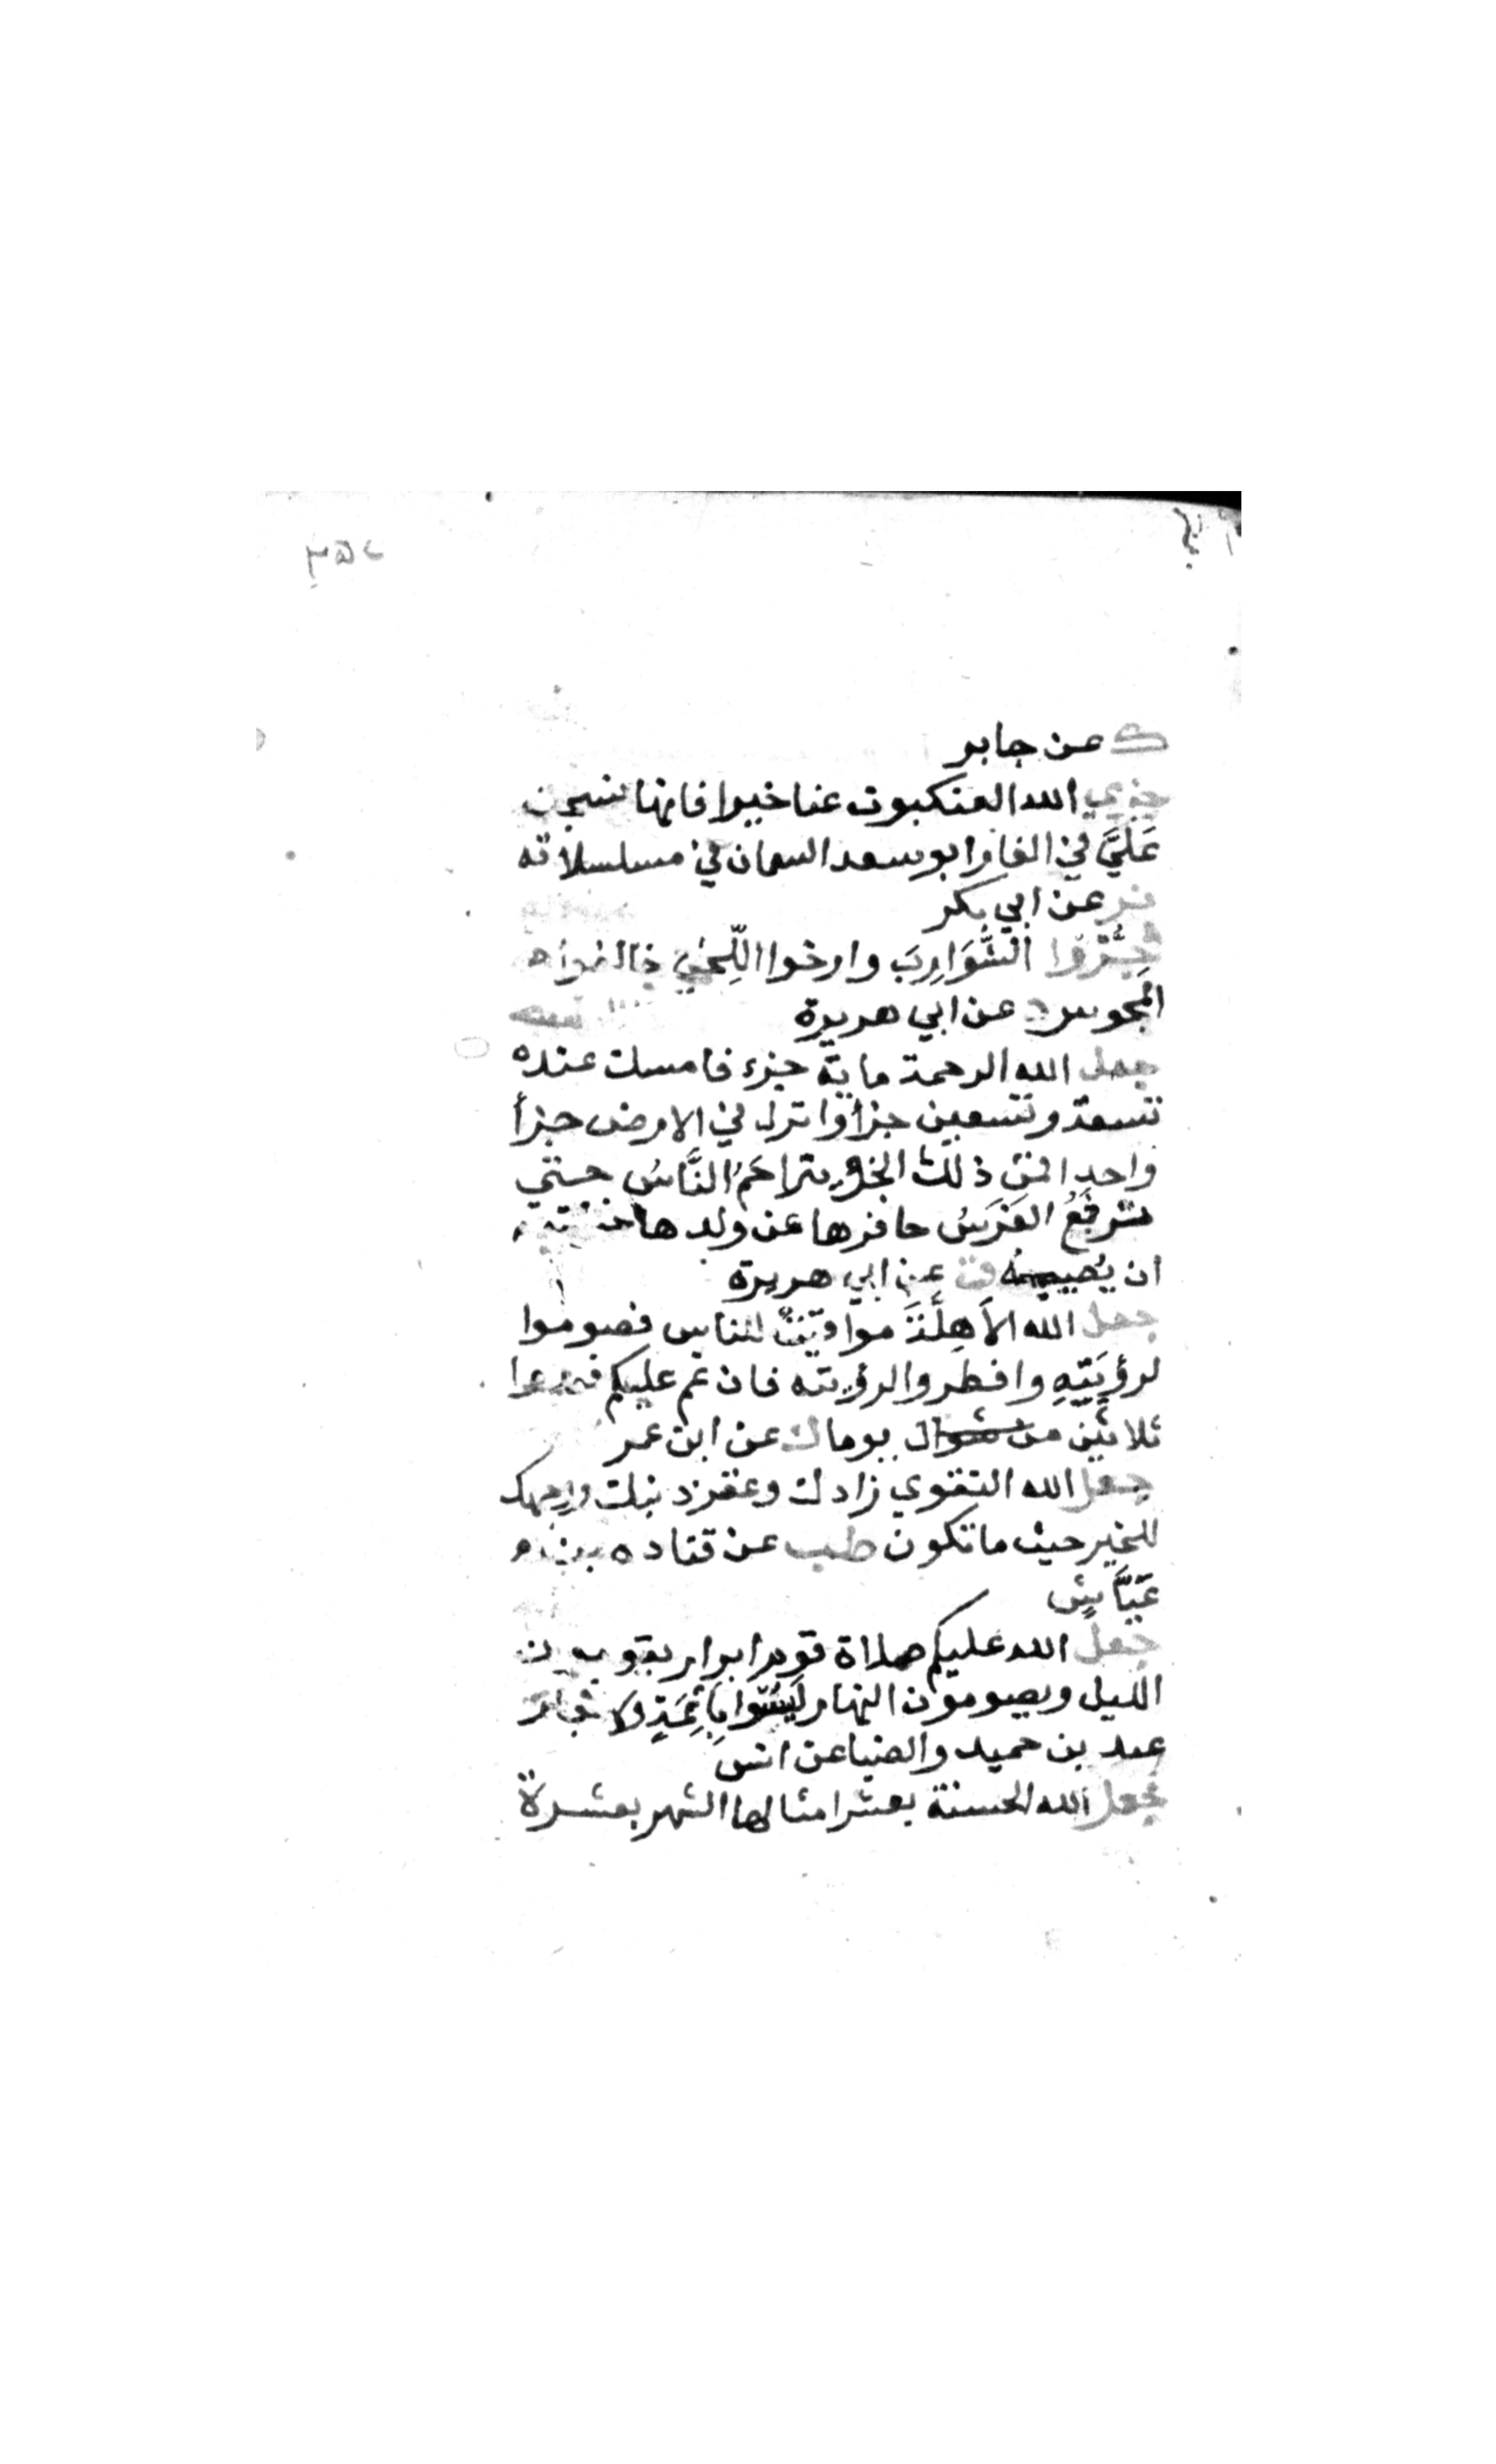 ك عن جابر
جزي الله العنكبوت عنا خيرا فانها نسجت
عَلَيَّ في الغار ابو سعد السمان في مسلسلاته
فر عن ابي بكر
جُزُّوا الشَّوَارِبَ وارخوا اللِّحَي خالفوا
المجوس عن ابي هريرة
جعل الله الرحمة ماية جزء فامسك عنده
تسعة وتسعين جزأ وانزل في الارض جزأ
واحدا فمن ذلك الجزء يتراحَمُ النَّاسُ حتي
ترفَعُ الفَرَسُ حافرها عن ولدها خشية
ان يُصيبه ق عن ابي هريرة
جعل الله الأَهِلَّةَ مواقيت للناس فصوموا
لرؤيَتِهِ وافطروا لرؤيته فان غم عليكم فعدوا
ثلاثين من شوال يوما ك عن ابن عمر
جعل الله التقوي زادك وغفر ذنبك ووجهك
للخير حيث ما تكون طب عن قتاده بن
عَيَّاشٍ
جعل الله عليكم صلاة قوم ابرار يقومون
الليل ويصومون النهار لَيْسُوا بِأَثِمَةٍ ولا فجار
عبد بن حميد والضيا عن انس
جعل الله الحسنة بعشر امثالها الشهر بعشرة